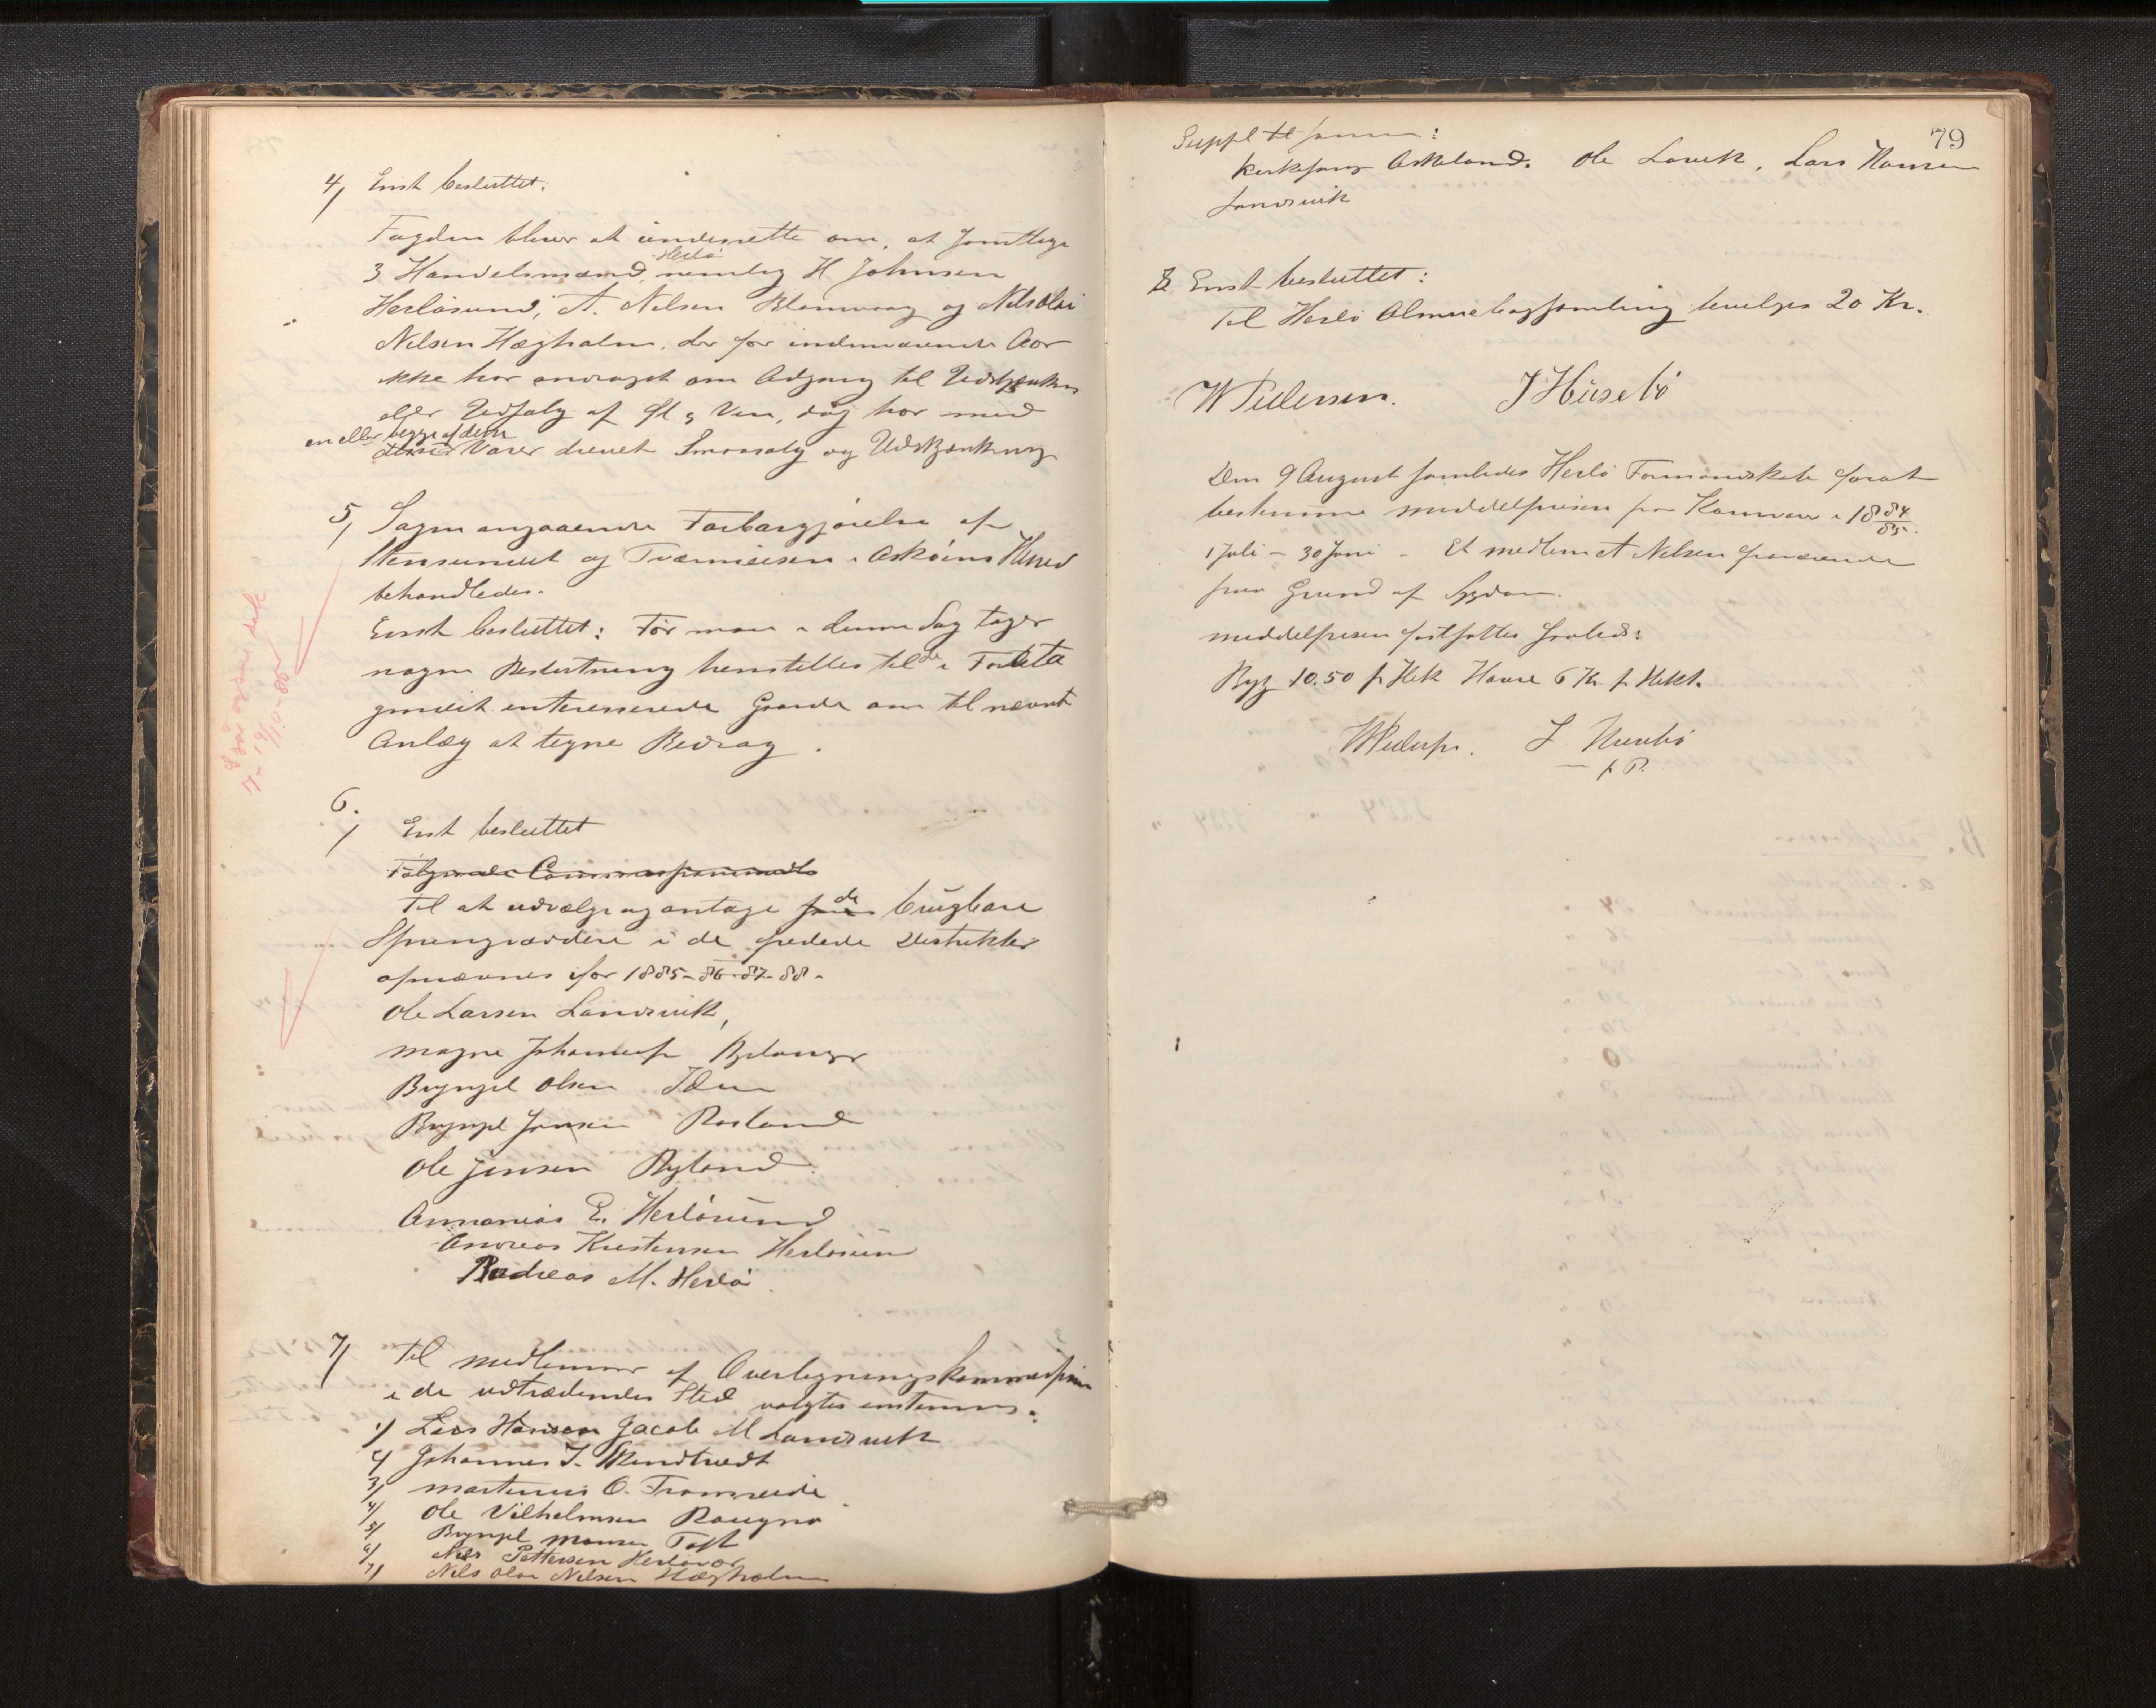 4/ Enst besluttet.
Fogden bliver at underrette om, at samtlige
3 Handelsmænd, Herlø nemlig H Johnsen
Herløsund, A. Nilsen Blomvaag og Nils Olai
Nilsen Hægholm, der for indeværende Aar
ikke har andraget om Adgang til Udskjænkn
eller Udsalg af Øl & Vin, dog har med
en eller begge af dem
disse Varer drevet Smaasalg og Udskjænkning
5/ Sagen angaaende Farbargjørelse af
Stensundet og Tværmeisen i Askøens Herred
behandledes.
Enst besluttet: Før man i denne Sag tager
nogen Beslutning henstilles til de i Foreta
gendet interesserede Gaarde om til nævnt
Anlæg at tegne Bidrag.
7-19/10-85
6./ Enst besluttet
Følgende Commissionsmedl
Til at udvælge og antage de brugbare
Sprengværdere i de fredede Distrikter
opnævnes for 1885-86-87-88-
Ole Larsen Landsvik,
Magne Johanness Bjelanger
Brynjel Olsen Iden
Brynjel Jansen Rosland
Ole Jensen Ryland.
Annanias E. Herløsund
Andreas Kristensen Herløsun
Andreas M. Herlø.
7/ Til Medlemmer af Overligningskommissjon
i de udtrædendes Sted valgtes enstemmig:
1/ Lars Hansen Jacob M Landsvik
2/ Johannes J. Skendtvedt
3/ Martinus O. Trommeide
4/ Ole Vilhelmsen
5/ Brynjel Monsen Toft
6/ Nils Pettersen Herløvær
7/ Nils Olai Nilsen Hægholm
79
Suppl til samme:
Kirkesang Askeland. Ole Lavik. Lars Hansen
Landsvik
8 Enst besluttet:
Til Herlø Almuebogsamling bevilges 20 Kr.
W Pedersen. J Husebø
Den 9 August samledes Herlø Formandskab forat
bestemme Middelprisen paa Kornvare i 1884/85.
1 Juli - 30 Juni - Et medlem A Nilsen fraværende
paa Grund af Sygdom.
Middelprisen fastsattes saaledes:
Byg 10.50 p Hek Havre 6 Kr. p Hekt.
W Peders. J Husebø
p P.